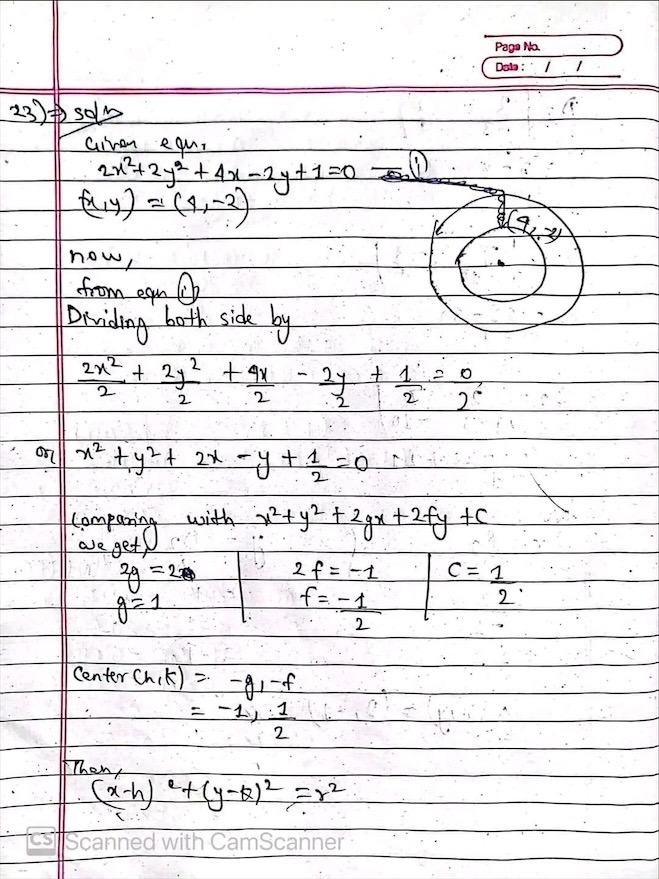 Page No.
Date : / /
23) ⇒ soln
Given eqn,
2x² + 2y² + 4x - 2y + 1 = 0 — (i)
(x, y) = (4, -2)
(4, -2)
now,
from eqn (i)
Dividing both side by
2x²/2 + 2y²/2 + 4x/2 - 2y/2 + 1/2 = 0/2
or x² + y² + 2x - y + 1/2 = 0
Comparing with x² + y² + 2gx + 2fy + C
we get,
2g = 2 | 2f = -1 | C = 1/2
g = 1 | f = -1/2
Center (h, k) = -g, -f
= -1, 1/2
Then,
(x-h)² + (y-k)² = r²
CS Scanned with CamScanner